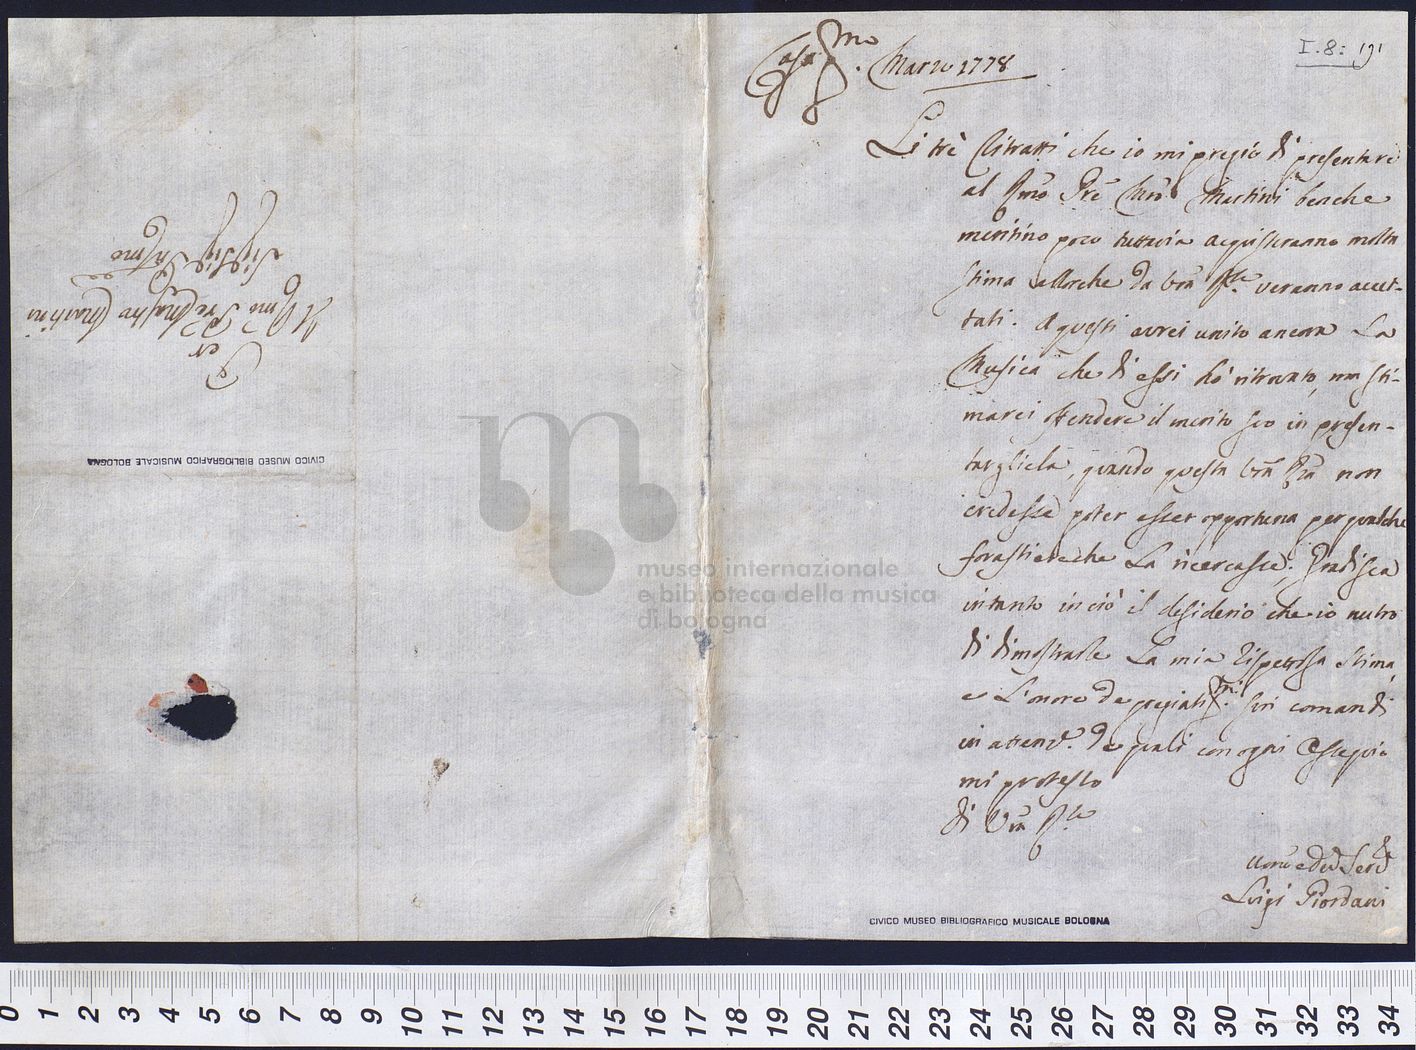 I. 8: 191
Casa Marzo 1778
Li trè Ritratti che io mi pregio di presentare
al Rmo Prē Mrō Martini benche
meritino poco tuttavia acquisteranno molta
stima allorche da Vrā Rz̄a veranno accet-
tati. A questi avrei unito ancora La
Musica che di essi hò ritrovato, ma sti-
marei offendere il merito suo in presen-
targliela, quando questa Vrā Rz̄a non
credesse poter esser opportuna per qualche
forastiere che La ricercasse; Gradisca
intanto in ciò il desiderio che io nutro
di dimostrarle La mia rispettosa stima,
e L'onore de pregiatis.mi suoi comandi
in attenz.e de quali con ogni Ossequio
mi protesto
di Vrā
Luigi Giordani
CIVICO MUSEO BIBLIOGRAFICO MUSICALE BOLOGNA
Per
Il Rmo Pre Maestro Martini
CIVICO MUSEO BIBLIOGRAFICO MUSICALE BOLOGNA
museo internazionale
e biblioteca della musica
di bologna
0 1 2 3 4 5 6 7 8 9 10 11 12 13 14 15 16 17 18 19 20 21 22 23 24 25 26 27 28 29 30 31 32 33 34